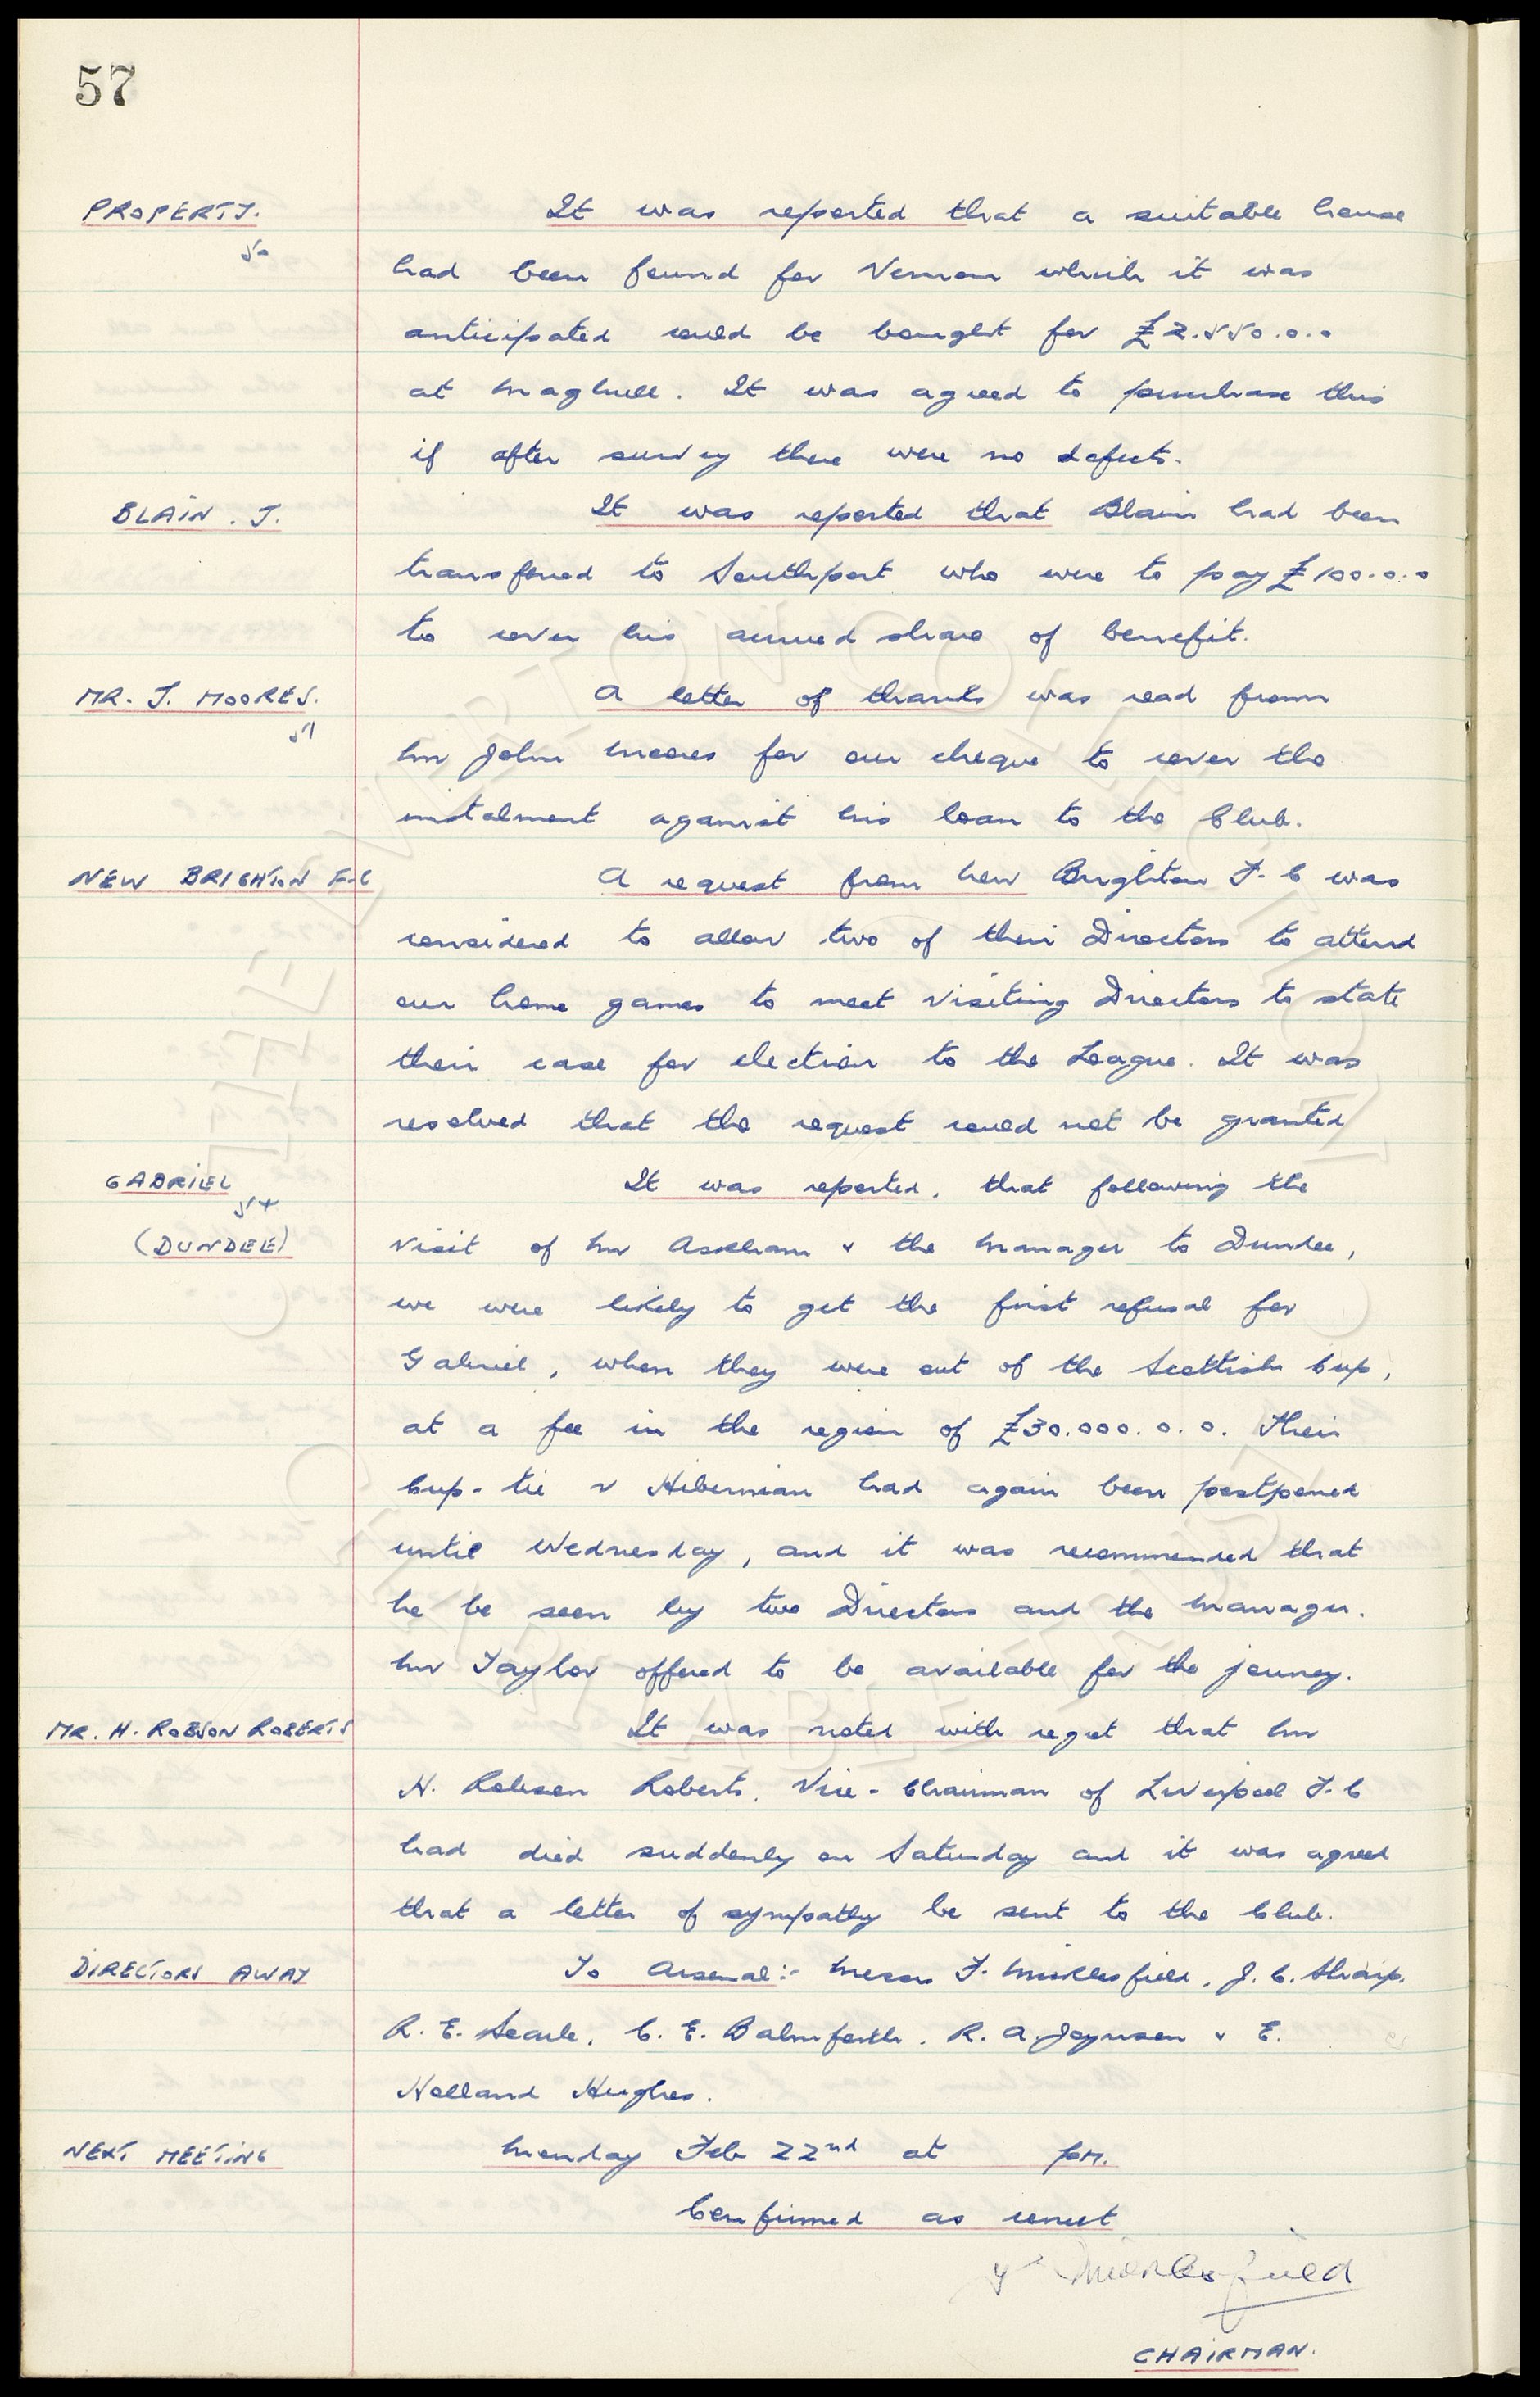 57
PROPERTY. It was reported that a suitable house
50
had been found for Vernon which it was
anticipated could be bought for £2.550.0.0
at Maghull. It was agreed to purchase this
if after survey there were no defects.
BLAIN. J. It was reported that Blain had been
transferred to Southport who were to pay £100.0.0
to cover his accrued share of benefit.
MR. J. MOORES. A letter of thanks was read from
51
Mr John Moores for our cheque to cover the
instalment against his loan to the Club.
NEW BRIGHTON F.C A request from New Brighton F.C was
considered to allow two of their Directors to attend
our home games to meet Visiting Directors to state
their case for election to the League. It was
resolved that the request could not be granted
GABRIEL It was reported, that following the
(DUNDEE) visit of Mr Askham & the Manager to Dundee,
we were likely to get the first refusal for
Gabriel, when they were out of the Scottish Cup,
at a fee in the region of £30.000.0.0. Their
Cup-tie v Hibernian had again been postponed
until Wednesday, and it was recommended that
he be seen by two Directors and the Manager.
Mr Taylor offered to be available for the jouney.
MR. H. ROBSON ROBERTS It was noted with regret that Mr
H. Robson Roberts, Vice-Chairman of Liverpool F.C
had died suddenly on Saturday and it was agreed
that a letter of sympathy be sent to the Club.
DIRECTORS AWAY To Arsenal:- Messrs F. Micklesfield, J. C. Sharp,
R. E. Searle, C. E. Balmforth, R. A. Joynson & E.
Holland Hughes.
NEXT MEETING Monday Feb 22nd at pm.
Confirmed as correct
F Micklesfield
CHAIRMAN.